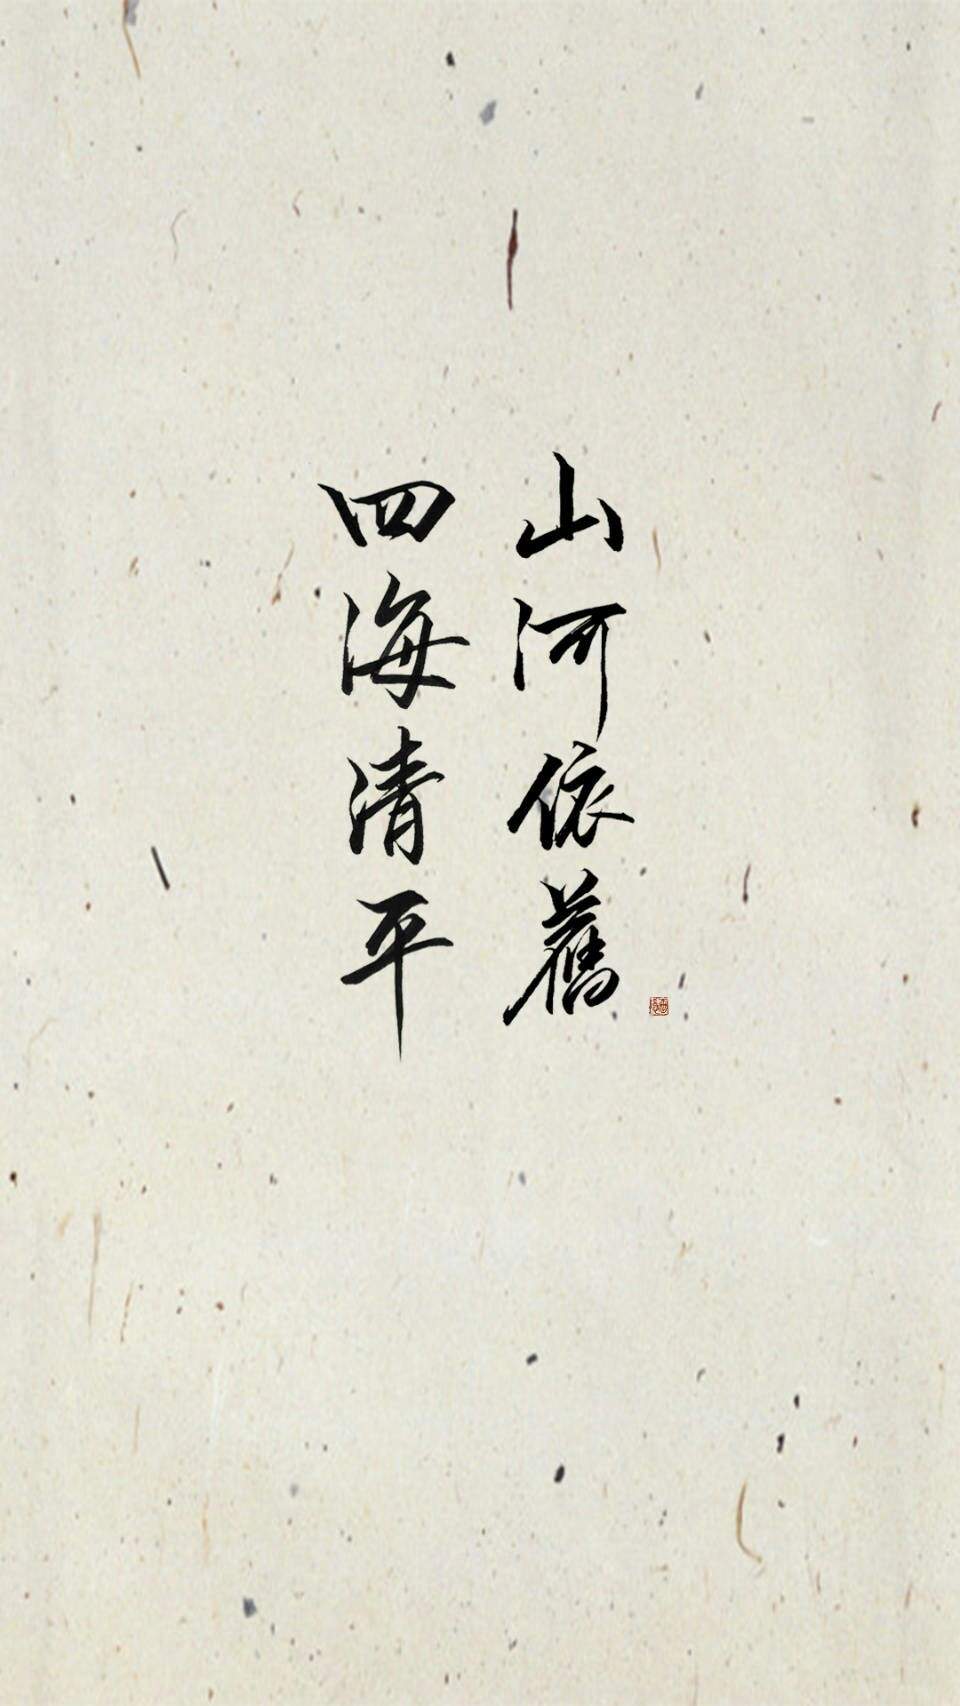 山河依舊
四海清平